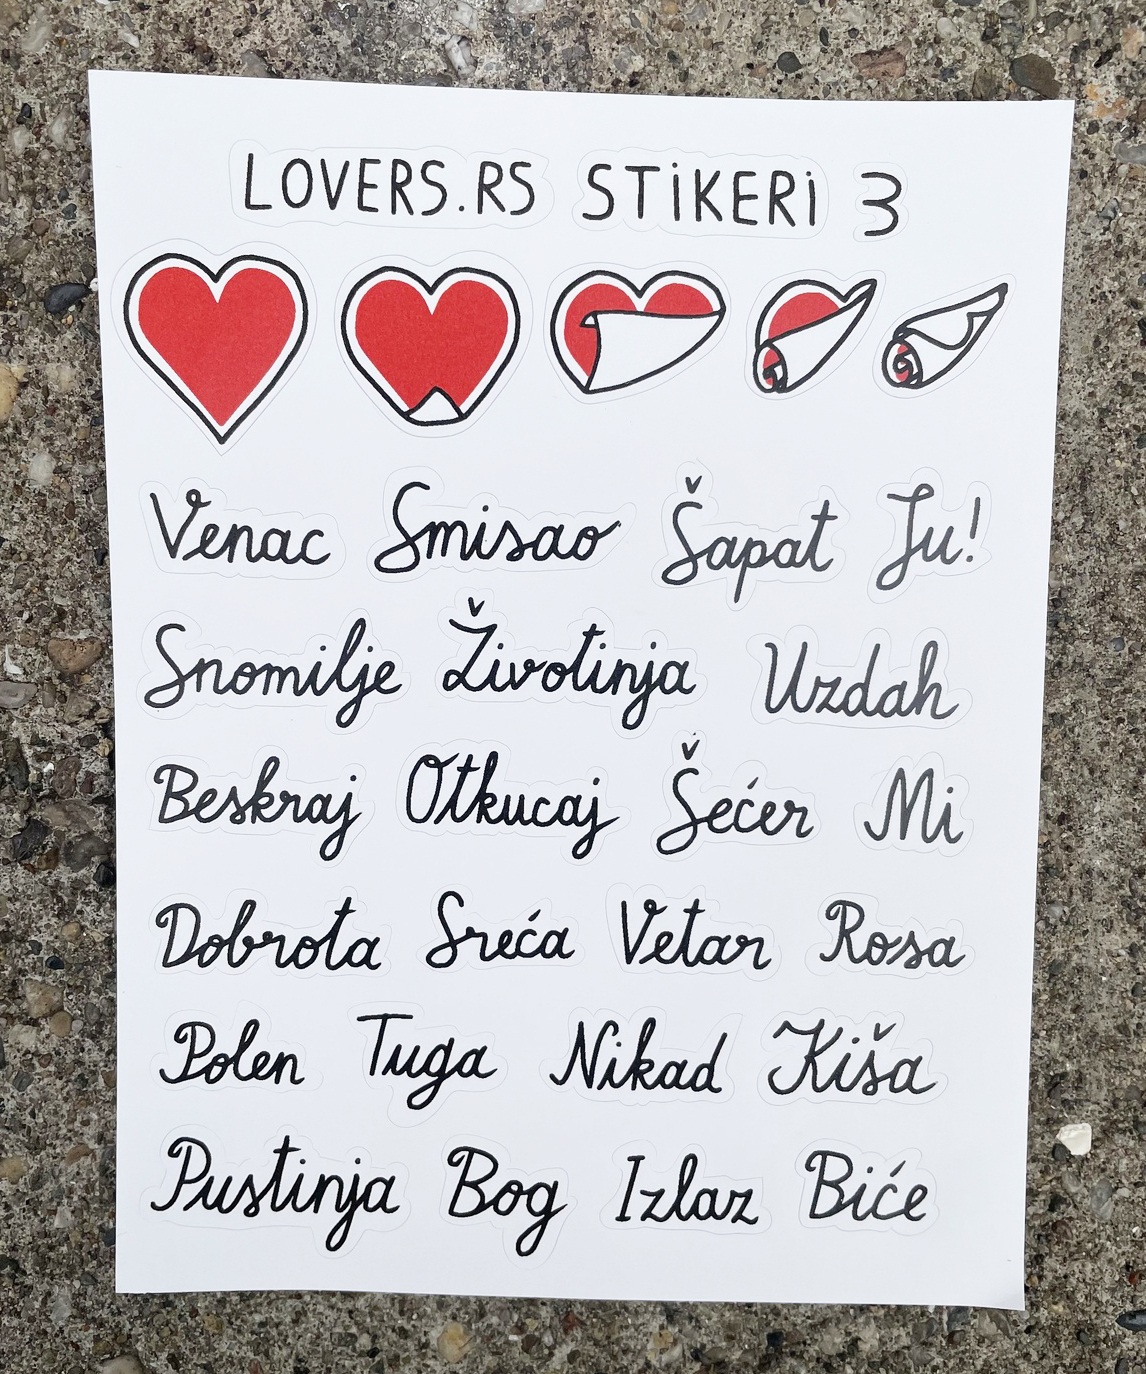 LOVERS.RS STiKERi 3
Venac Smisao Šapat Ju!
Snomilje Životinja Uzdah
Beskraj Otkucaj Šećer Mi
Dobrota Sreća Vetar Rosa
Polen Tuga Nikad Kiša
Pustinja Bog Izlaz Biće